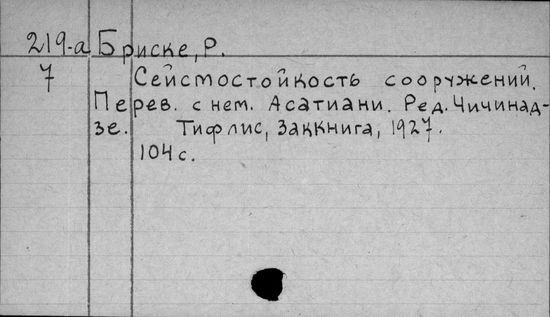 219-а Бриске, Р.
7 Сейсмостойкость сооружений.
Перев. с нем. Асатиани. Ред. Чичинад-
зе. Тифлис, Заккнига, 1927.
104 с.